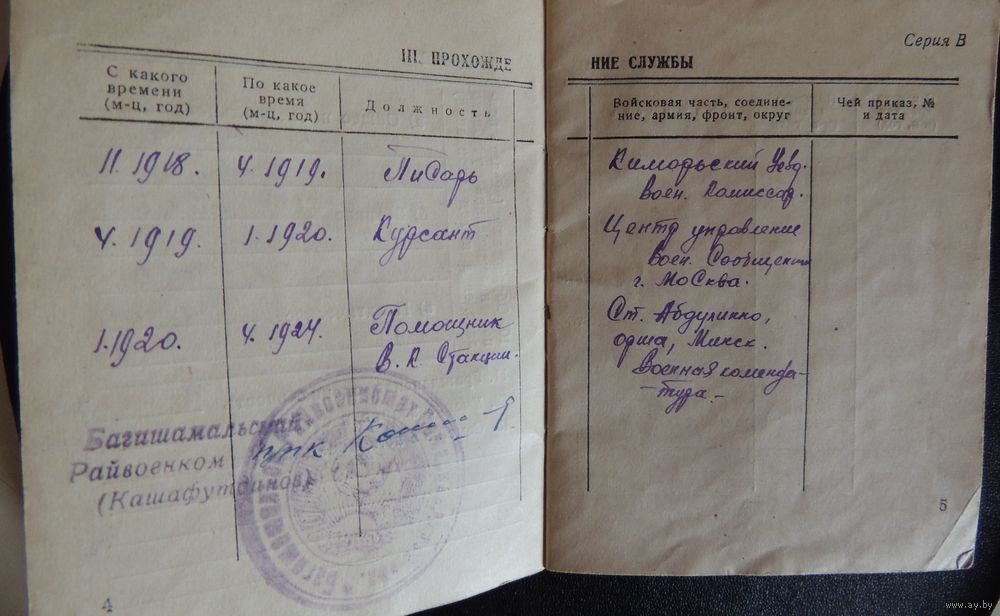 III. ПРОХОЖДЕ
С какого
времени
(м-ц, год)
По какое
время
(м-ц, год)
Должность
II. 1918.
4. 1919.
Писарь
4. 1919.
1. 1920.
Курсант
1. 1920.
4. 1924.
Помощник
В. К. Станции.
Багишамальский
Райвоенком
(Кашафутдинов)
ппк
4
Серия В
НИЕ СЛУЖБЫ
Войсковая часть, соедине-
ние, армия, фронт, округ
Чей приказ, №
и дата
Киморьский Уезд.
Воен. Комиссар.
Центр управление
Воен. Сообщения
г. Москва.
Ст. Абдулинно,
орша, Минск.
Военная коменда-
-тура.-
5
www.ay.by